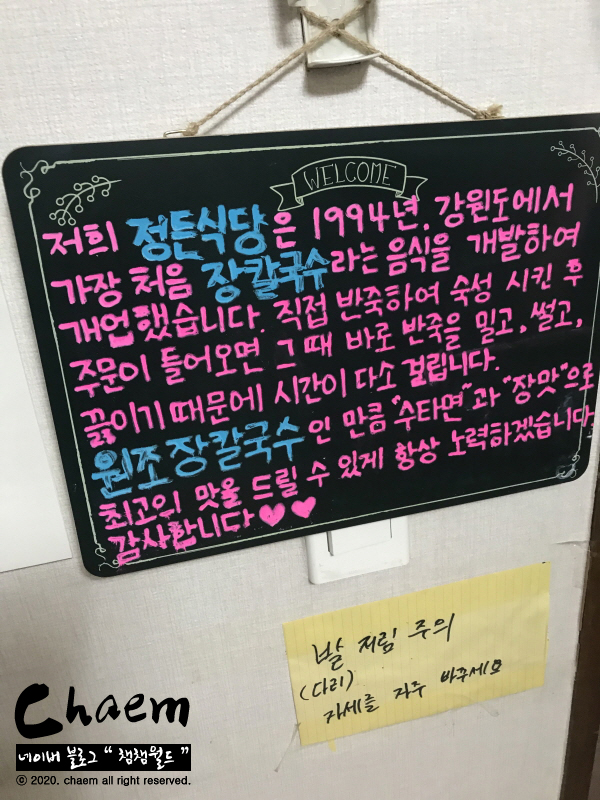 WELCOME
저희 정든식당은 1994년. 강원도에서
가장 처음 장칼국수라는 음식을 개발하여
개업했습니다. 직접 반죽하여 숙성 시킨 후
주문이 들어오면 그때 바로 반죽을 밀고, 썰고,
끓이기 때문에 시간이 다소 걸립니다.
원조 장칼국수인 만큼 "수타면"과 "장맛"으로
최고의 맛을 드릴 수 있게 항상 노력하겠습니다
감사합니다♥♥
발 저림 주의
(다리)
자세를 자주 바꾸세요
Chaem
네이버 블로그 "챔챔월드"
© 2020. chaem all right reserved.